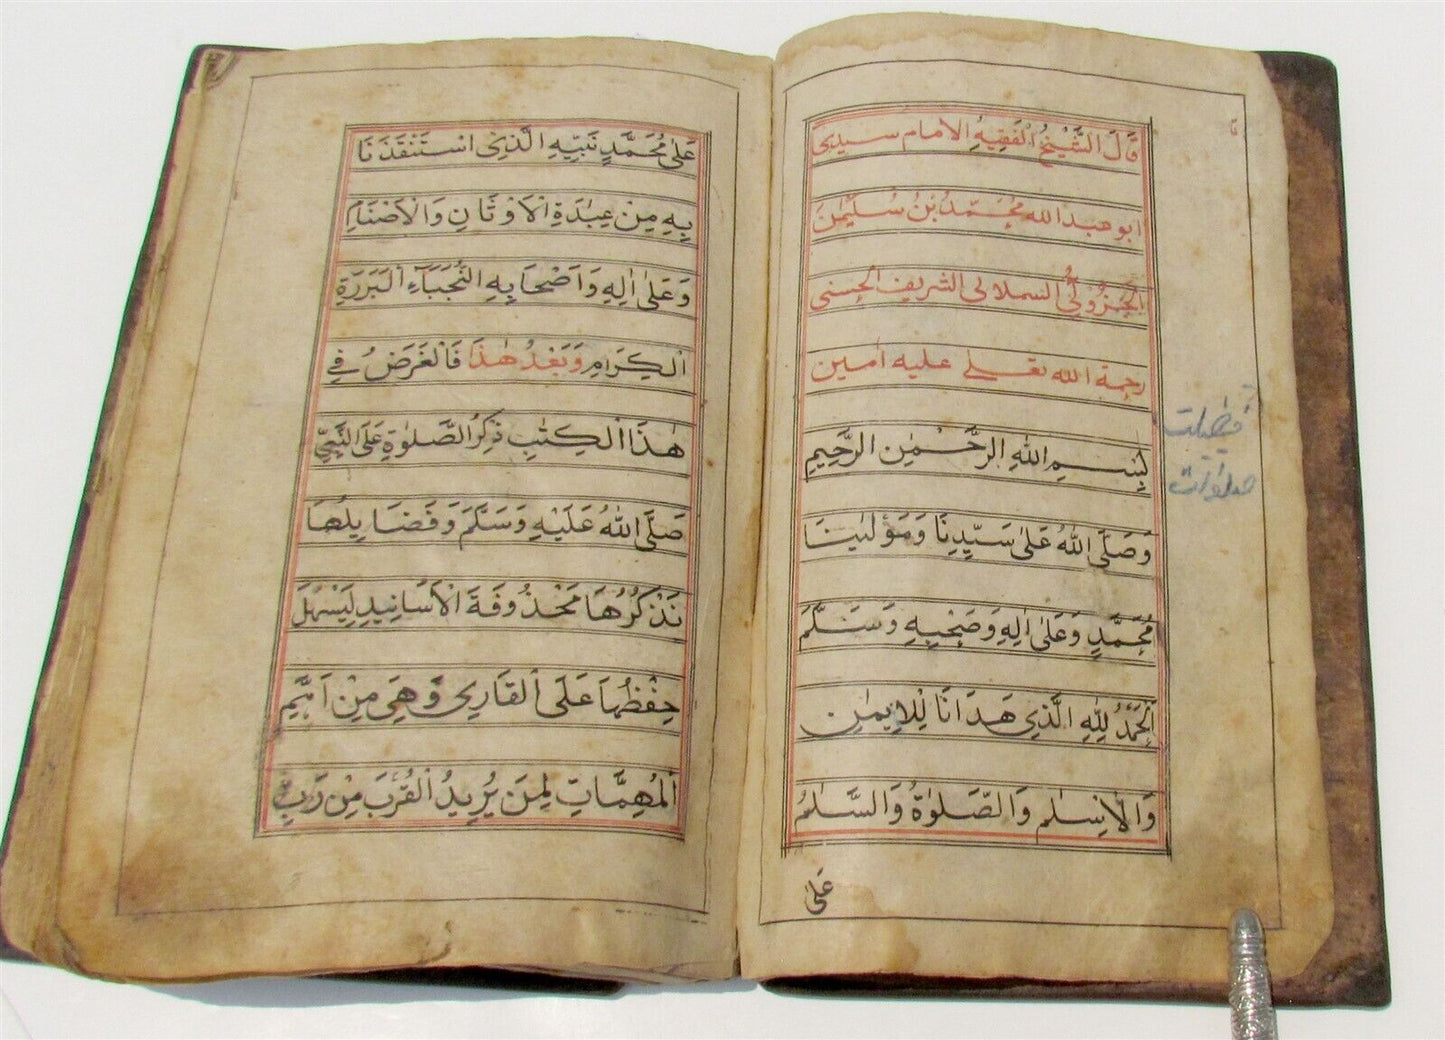 قَالَ الشَّيْخُ الْفَقِيهُ الامام سيدى
ابو عبد الله مُحَمَّدُ بْنُ سُلَيْمٰنَ
الْجَزُولِيُّ السملالى الشريف الحسنى
رحمة الله تعلى عليه اٰمين
بِسْمِ اللهِ الرَّحْمٰنِ الرَّحِيمِ
وَصَلَّى اللهُ عَلٰى سَيِّدِنَا وَمَوْلٰينَا
مُحَمَّدٍ وَعَلٰى اٰلِهِ وَصَحْبِهِ وَسَلَّمَ
اَلْحَمْدُ لِلّٰهِ الَّذِى هَدَانَا لِلْاِيمٰنِ
وَالْاِسْلٰمِ وَالصَّلٰوةُ وَالسَّلٰمُ
عَلٰى
فضيلت
صلوات
عَلٰى مُحَمَّدٍ نَبِيِّهِ الَّذِى اسْتَنْقَذَنَا
بِهِ مِنْ عِبَادَةِ الْاَوْثَانِ وَالْاَصْنَامِ
وَعَلٰى اٰلِهِ وَاَصْحَابِهِ النُّجَبَآءِ الْبَرَرَةِ
الْكِرَامِ وَبَعْدُ هٰذَا فَالْغَرَضُ فِى
هٰذَا الْكِتٰبِ ذِكْرُ الصَّلٰوةِ عَلَى النَّبِيِّ
صَلَّى اللهُ عَلَيْهِ وَسَلَّمَ وَفَضَايِلُهَا
نَذْكُرُهَا مَحْذُوفَةَ الْاَسَانِيدِ لِيَسْهُلَ
حِفْظُهَا عَلَى الْقَارِى وَهِىَ مِنْ اَهَمِّ
الْمُهِمَّاتِ لِمَنْ يُرِيدُ الْقُرْبَ مِنْ رَبِّ